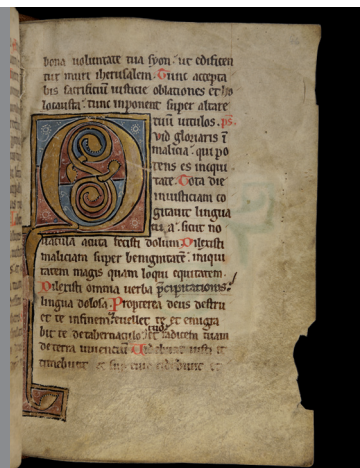 bona uoluntate tua syon ut edificen
tur muri iherusalem. Tunc accepta
bis sacrificiū iusticie oblationes et ho
locausta tunc inponent super altare
tuū uitulos. ps.
Quid gloriaris ī
malicia qui po
tens es iniqui
tate. Tota die
iniusticiam co
gitauit lingua
tua sicut no
uacula acuta fecisti dolum Dilexisti
maliciam super benignitatē iniqui
tatem magis quam loqui equitatem.
Dilexisti omnia uerba p̄cipitacionis
lingua dolosa. Propterea deus destru
et te in finem euellet te et emigra
bit te de tabernaculo tuo et radicem tuam
de terra uiuencium Videbunt iusti et
timebunt et super eum ridebunt et